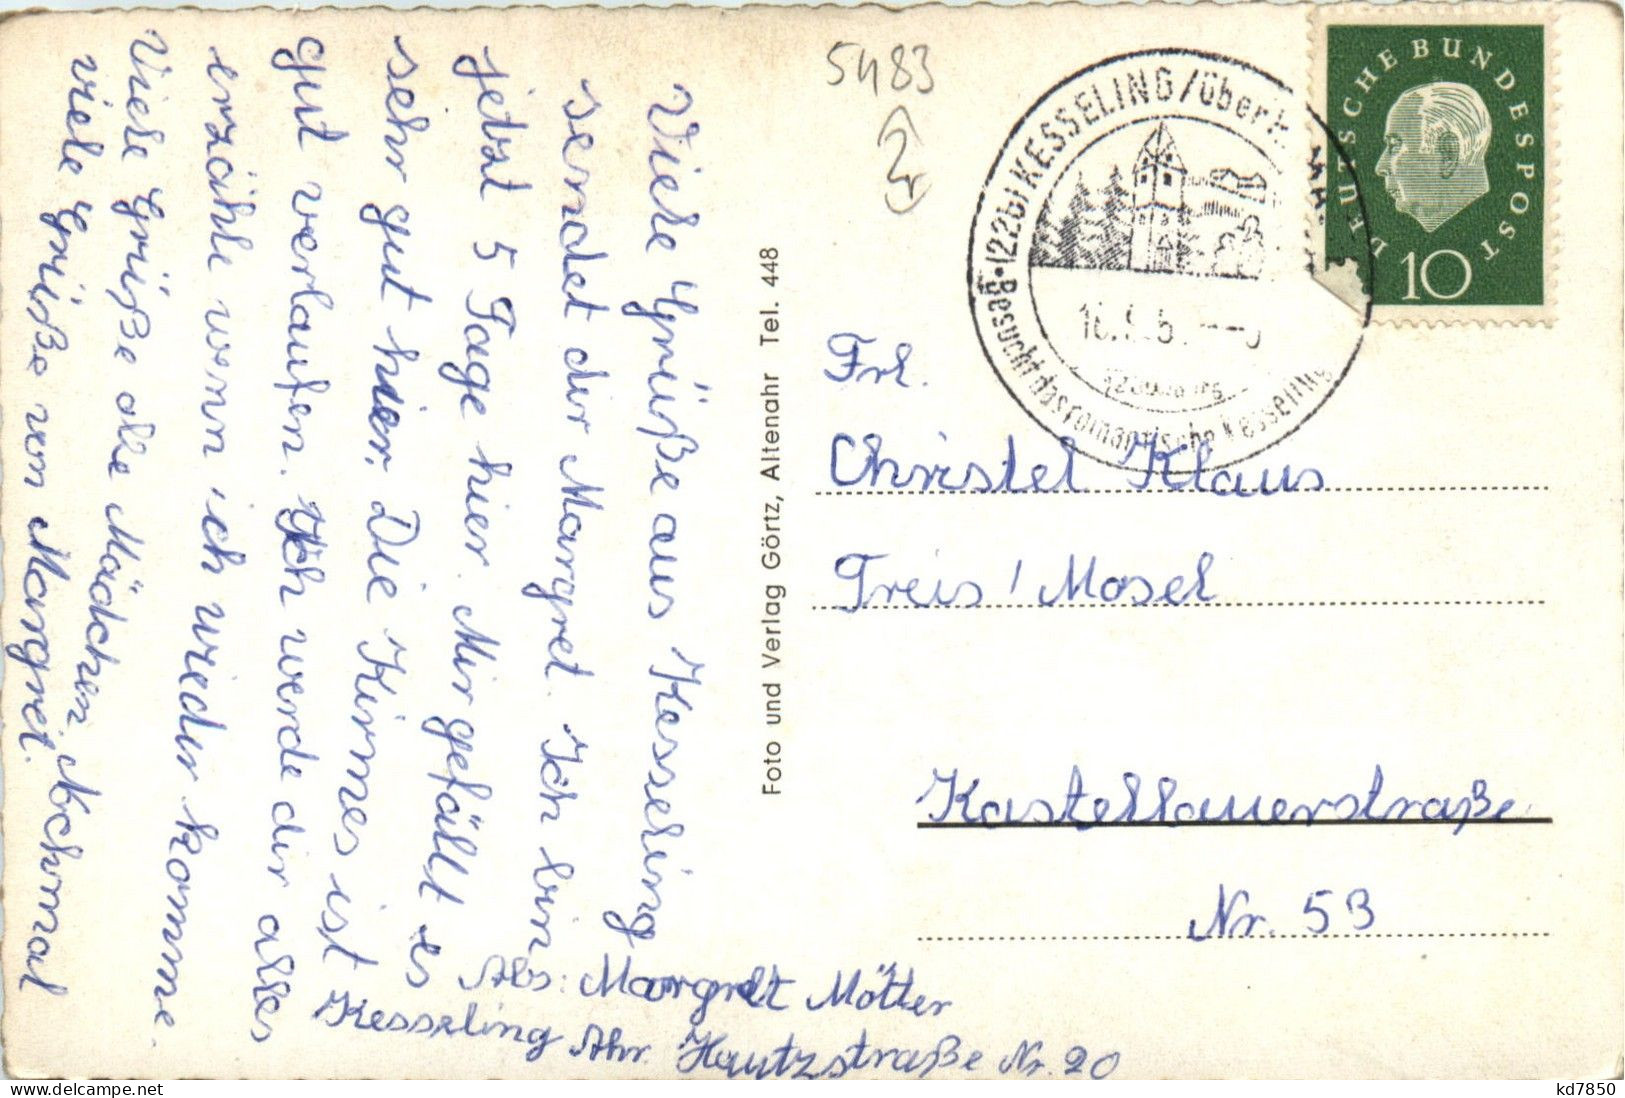 Viele Grüße aus Kesseling
sendet dir Margret. Ich bin
jetzt 5 Tage hier. Mir gefällt es
sehr gut hier. Die Kirmes ist
gut verlaufen. Ich werde dir alles
erzähle wenn ich wieder komme.
Viele Grüße alle Mädchen. Nochmal
viele Grüße von Margret.
Abs: Margret Mötter
Kesseling Ahr. Hautzstraße Nr. 20
Foto und Verlag Görtz, Altenahr Tel. 448
5483
(22b) KESSELING / über
Besucht das romantische Kesseling
DEUTSCHE BUNDESPOST
10
Frl.
Christel Klaus
Treis / Mosel
Kastellauerstraße
Nr. 53
www.delcampe.net
kd7850